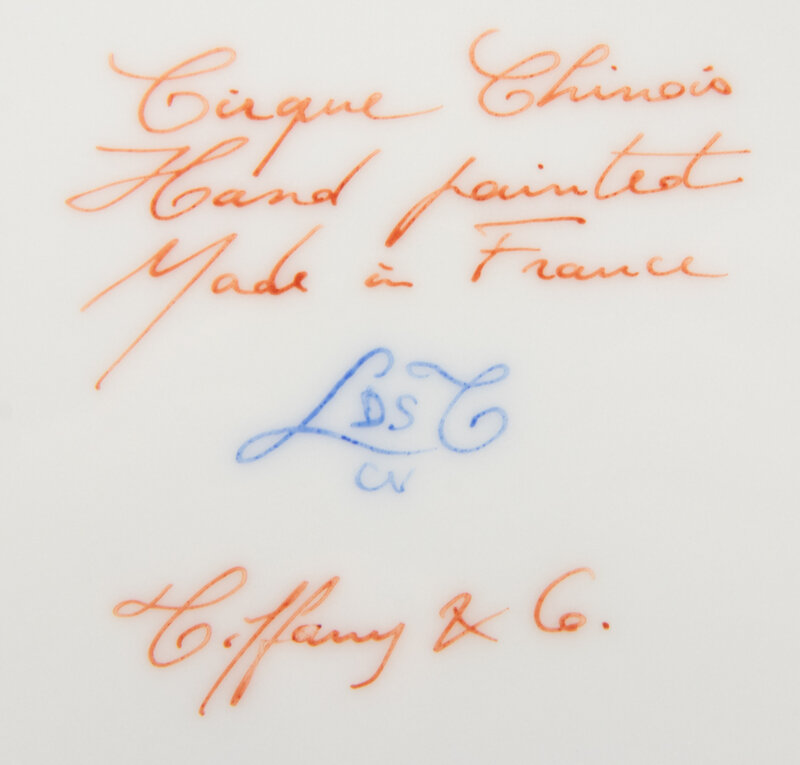 Cirque Chinois
Hand painted
Made in France
L DS C
CV
Tiffany & Co.